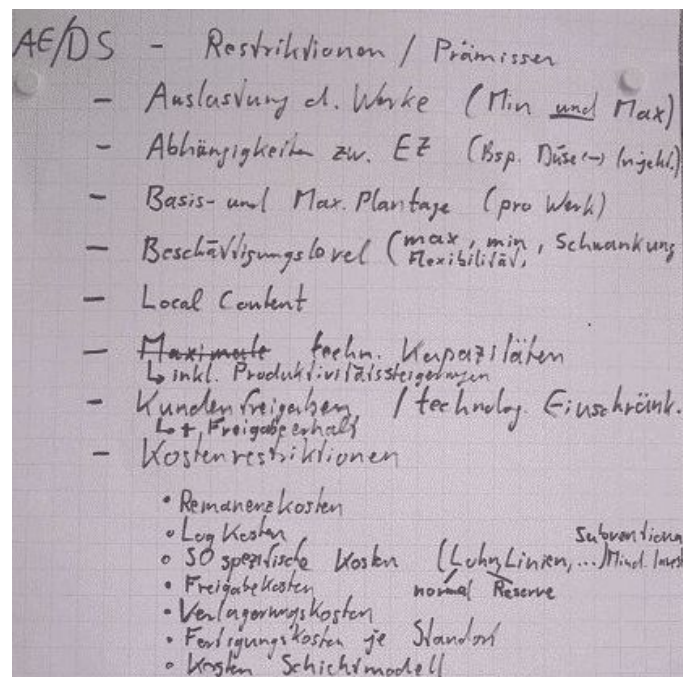 AE/DS - Restriktionen / Prämissen
- Auslastung d. Werke (Min und Max)
- Abhängigkeiten zw. EZ (Bsp. Düse ↔
- Basis- und Max. Plantage (pro Werk)
- Beschäftigungslevel (max, min, Schwankung
Flexibilität,
- Local Content
- Maximale techn. Kapazitäten
↳ inkl. Produktivitätssteigerungen
- Kundenfreigaben / technolog. Einschränk.
↳ + Freigabeerhalt
- Kostenrestriktionen
• Remanenzkosten
• Log Kosten
• SO spezifische Kosten (Lohn, Linien, ...) Mind.
normal Reserve
• Freigabekosten
• Verlagerungskosten
• Fertigungskosten je Standort
• Kosten Schichtmodell